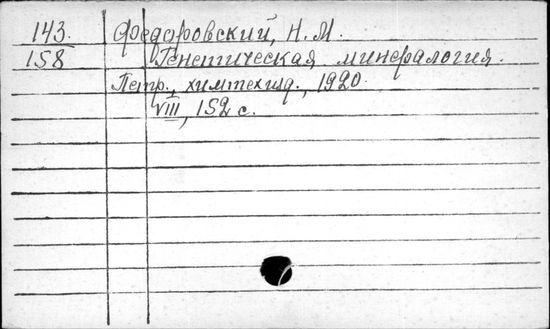 143. Федоровский, Н. М.
158 Генетическая минералогия.
Петр., химтехизд., 1920.
VIII, 152 с.